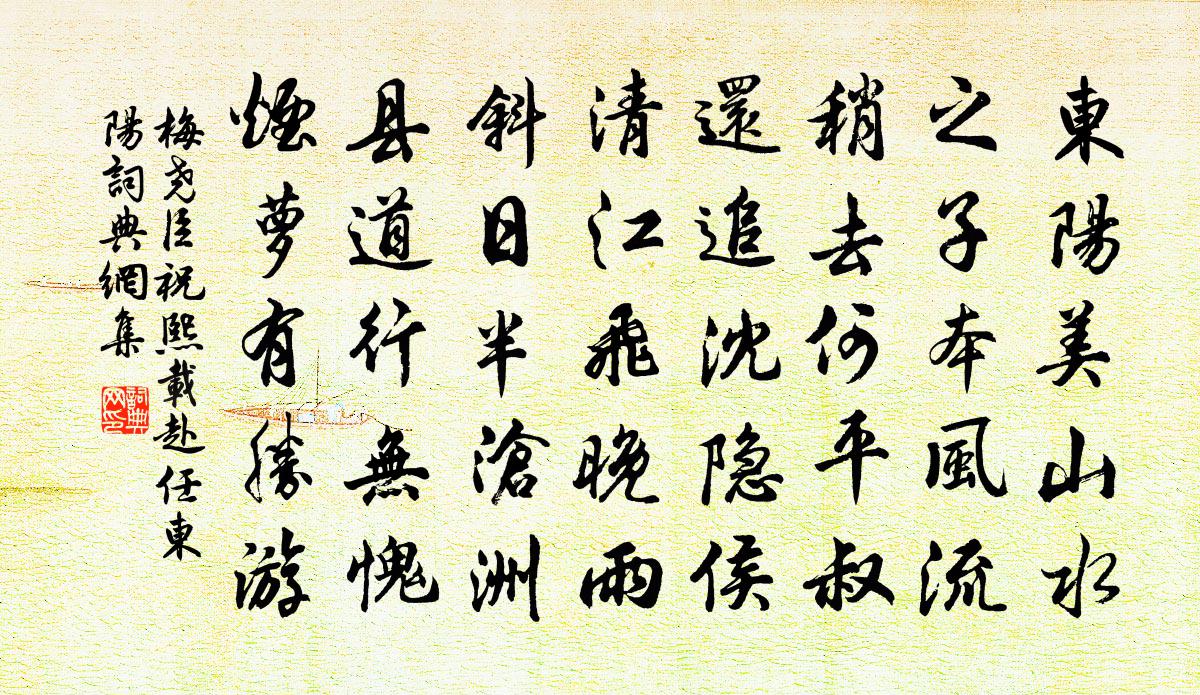 東陽美山水
之子本風流
稍去何平叔
還追沈隐侯
清江飛晚雨
斜日半滄洲
县道行無愧
煙萝有勝游
梅尧臣祝熙載赴任東
陽詞典網集
詞典
网印